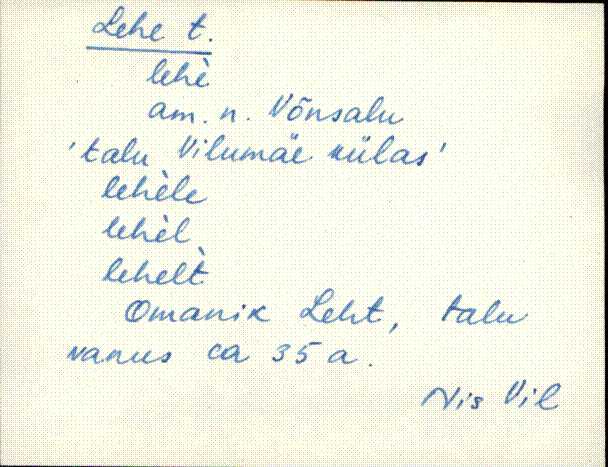 Lehe t.
lehè
am. n. Võnsalu
'talu Vilumäe külas'
lehèle
lehèl
lehelt̀
Omanik Leht, talu
vanus ca 35 a.
Nis Vil